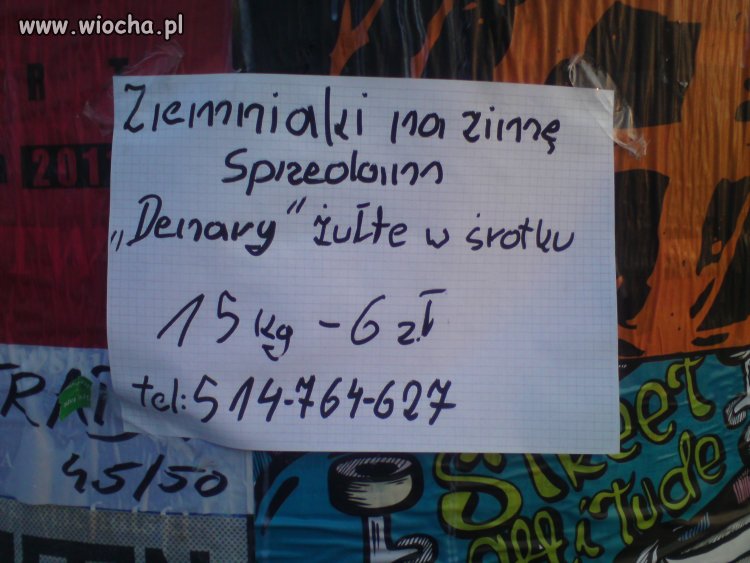 www.wiocha.pl
Ziemniaki na zimę
Sprzedam
„Denary” żułte w śrotku
15 kg - 6 zł
tel: 514-764-627
RT
201
TRAT
45/50
STREET
attitude